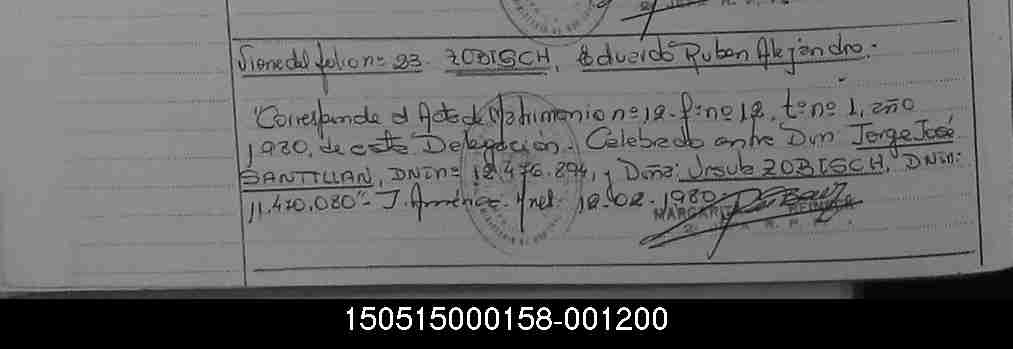 Viene del folio nº 23. ZOBISCH, Eduardo Ruben Alejandro.-
"Corresponde al Acta de Matrimonio nº 12- fº nº 12, tº nº 1, año
1980, de esta Delegación. Celebrado entre Dyn Jorge José
SANTILLAN, DNI nº 12.476.894, y Dña: Ursula ZOBISCH, DNI nº:
11.470.080"- J. América. 12.02.1980
MARGARITA
150515000158-001200